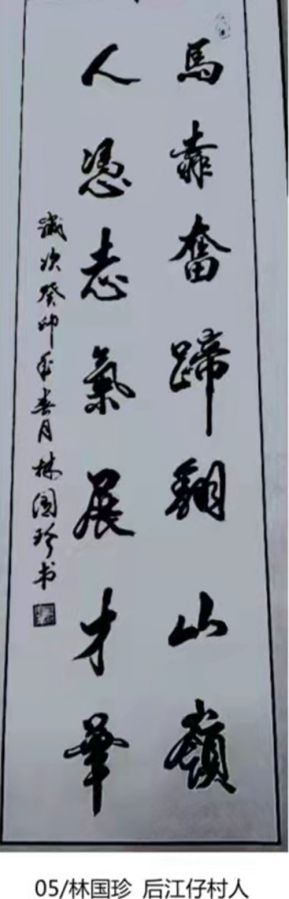 馬靠奮蹄翻山嶺
人憑志氣展才華
歲次癸卯年春月林國珍书
05/林国珍 后江仔村人